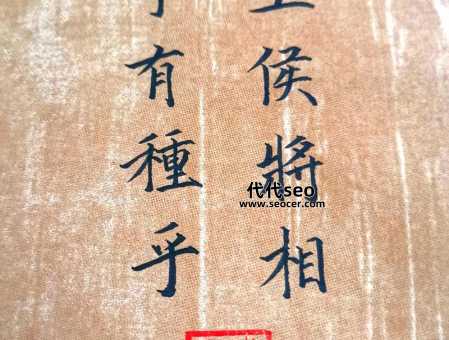 侯將相
有種乎
代代seo
www.seocer.com